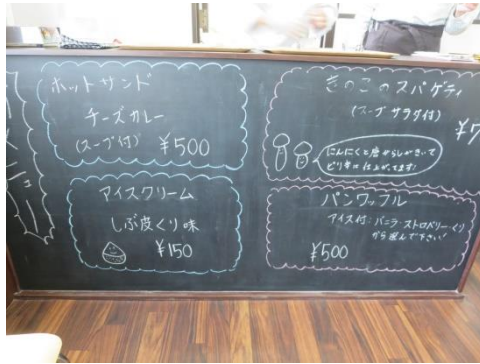 ホットサンド
チーズカレー
(スープ付) ¥500
アイスクリーム
しぶ皮くり味
¥150
きのこのスパゲティ
(スープ サラダ付)
¥7
にんにくと唐からしがきいて
ピリ辛に仕上がってます!
パンワッフル
アイス付:バニラ・ストロベリー・くり
から選んで下さい!
¥500